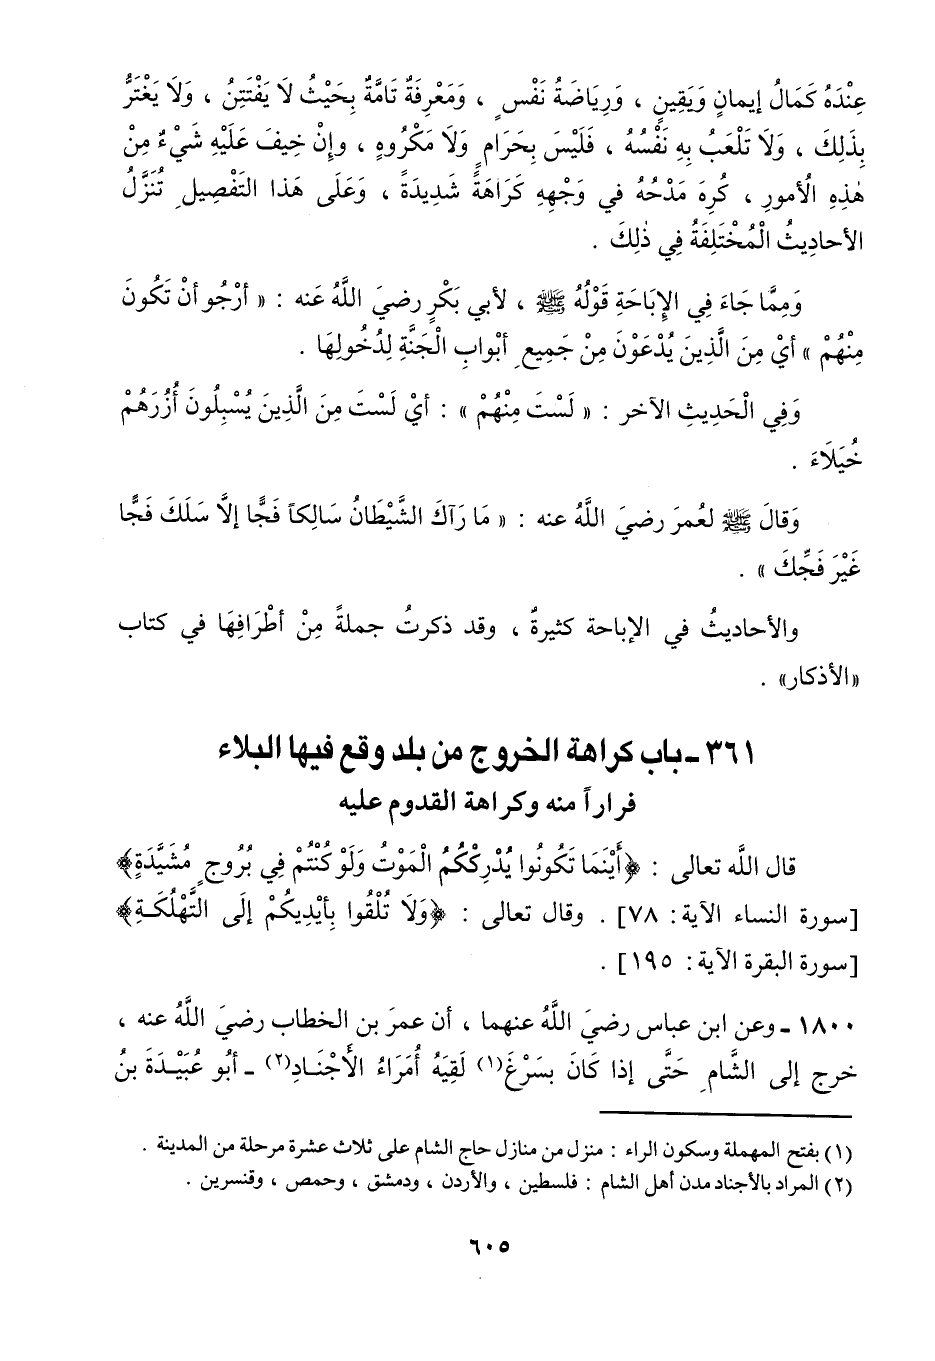 عِنْدَهُ كَمَالُ إيمانٍ وَيَقِينٍ ، وَرِيَاضَةُ نَفْسٍ ، وَمَعْرِفَةٌ تَامَّةٌ بِحَيْثُ لَا يَفْتَتِنُ ، وَلَا يَغْتَرُّ
بِذَلِكَ ، وَلَا تَلْعَبُ بِهِ نَفْسُهُ ، فَلَيْسَ بِحَرَامٍ وَلَا مَكْرُوهٍ ، وإِنْ خِيفَ عَلَيْهِ شَيْءٌ مِنْ
هٰذِهِ الْأمورِ ، كُرِهَ مَدْحُهُ في وَجْهِهِ كَرَاهَةً شَدِيدَةً ، وَعَلَى هَذا التَفْصِيلِ تُنَزَّلُ
الأحاديثُ الْمُخْتَلِفَةُ فِي ذٰلِكَ .
وَمِمَّا جَاءَ فِي الإِبَاحَةِ قَوْلُهُ ﷺ ، لأبي بَكْرٍ رضيَ اللَّهُ عَنه : « أرْجُو أنْ تَكُونَ
مِنْهُمْ » أيْ مِنَ الَّذِينَ يُدْعَوْنَ مِنْ جَمِيعِ أبْوابِ الْجَنَّةِ لِدُخُولِهَا .
وَفِي الْحَدِيثِ الآخر : « لَسْتَ مِنْهُمْ » : أيْ لَسْتَ مِنَ الَّذِينَ يُسْبِلُونَ أُزُرَهُمْ
خُيَلَاءَ .
وَقالَ ﷺ لعُمرَ رضيَ اللَّهُ عنه : « مَا رَآكَ الشَّيْطَانُ سَالِكاً فَجًّا إلاَّ سَلَكَ فَجًّا
غَيْرَ فَجِّكَ » .
والأحاديثُ في الإباحة كثيرةٌ ، وقد ذكرتُ جملةً مِنْ أطْرَافِهَا في كتاب
«الأذكار» .
٣٦١ ـ باب كراهة الخروج من بلد وقع فيها البلاء
فراراً منه وكراهة القدوم عليه
قال اللَّه تعالى : ﴿أَيْنَمَا تَكُونُوا يُدْرِكْكُمُ الْمَوْتُ وَلَوْ كُنْتُمْ فِي بُرُوجٍ مُشَيَّدَةٍ﴾
[سورة النساء الآية: ٧٨] . وقال تعالى : ﴿وَلَا تُلْقُوا بِأيْدِيكُمْ إلَى التَّهْلُكَةِ﴾
[سورة البقرة الآية: ١٩٥] .
١٨٠٠ ـ وعن ابن عباس رضيَ اللَّهُ عنهما ، أن عمرَ بن الخطاب رضيَ اللَّهُ عنه ،
خرج إلى الشَّامِ حَتَّى إذا كَانَ بسَرْغَ(١) لَقِيَهُ أُمَرَاءُ الأجْنَادِ(٢) ـ أبُو عُبَيْدَةَ بنُ
(١) بفتح المهملة وسكون الراء : منزل من منازل حاج الشام على ثلاث عشرة مرحلة من المدينة .
(٢) المراد بالأجناد مدن أهل الشام : فلسطين ، والأردن ، ودمشق ، وحمص ، وقنسرين .
٦٠٥